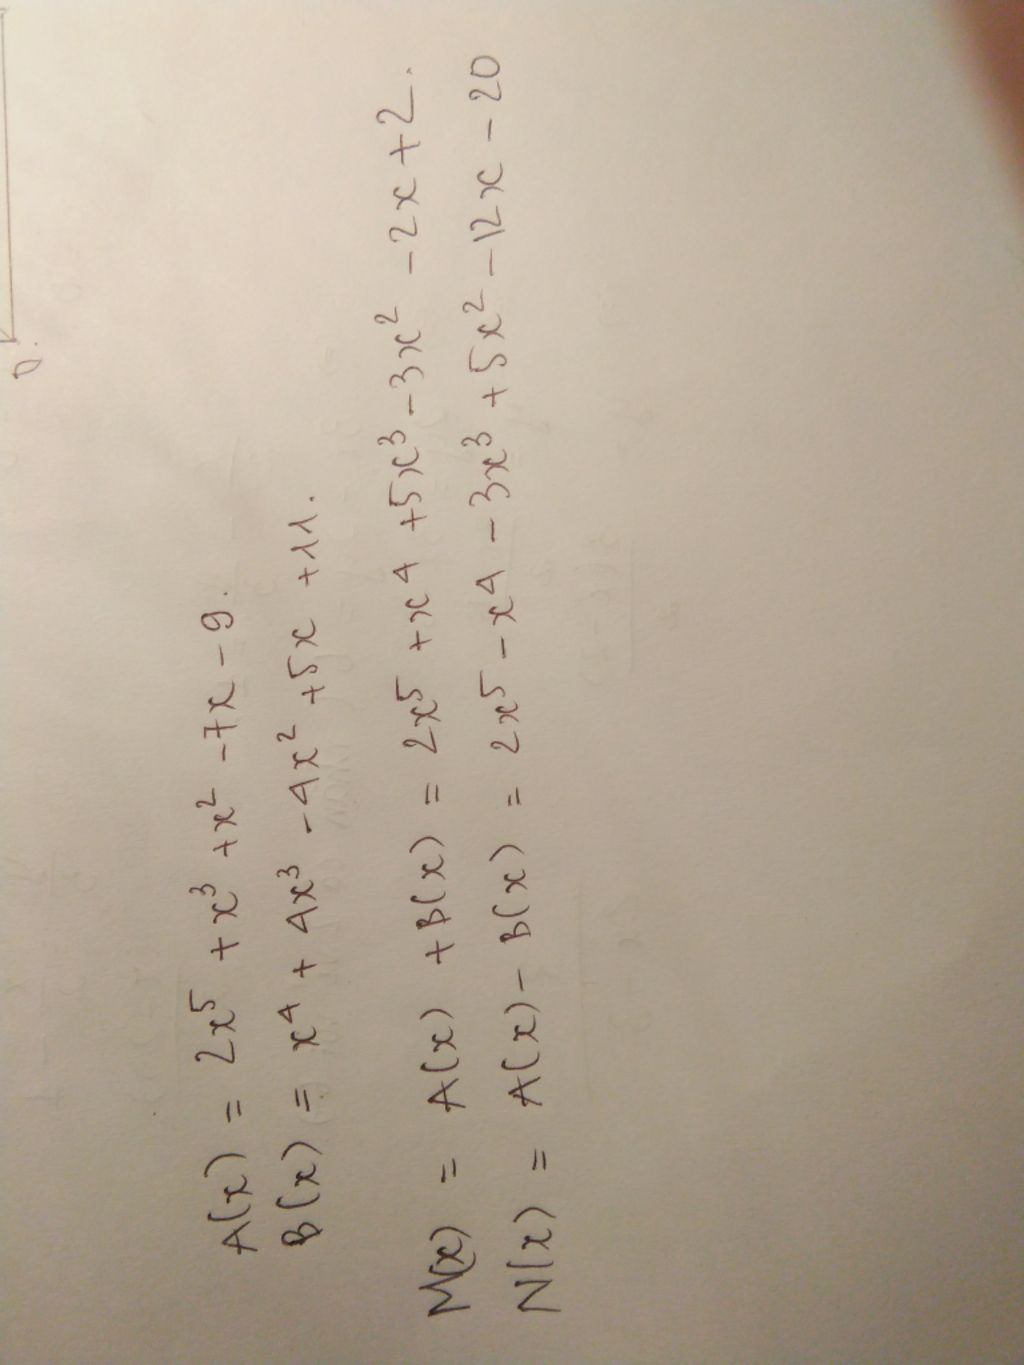 D.
A(x) = 2x⁵ + x³ + x² - 7x - 9.
B(x) = x⁴ + 4x³ - 4x² + 5x + 11.
M(x) = A(x) + B(x) = 2x⁵ + x⁴ + 5x³ - 3x² - 2x + 2.
N(x) = A(x) - B(x) = 2x⁵ - x⁴ - 3x³ + 5x² - 12x - 20